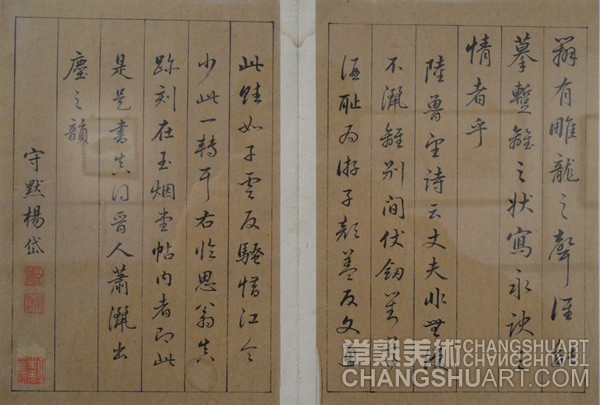 辯有雕龍之聲誰能
摹暫離之狀寫永訣之
情者乎
陸魯望詩云丈夫非無淚
不灑離別間仗劍對樽
酒恥為游子顏蓋反文通
此賦如子雲反騷惜江令
少此一轉耳右臨思翁真
跡刻在玉烟堂帖内者即此
是書真同晉人蕭灑出
塵之韻
守默楊岱
常熟美術
CHANGSHUART.COM